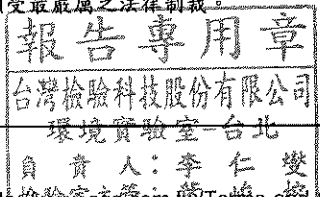 受最嚴厲之法律制裁。
報告專用章
台灣檢驗科技股份有限公司
環境實驗室-台北
負責人:李仁燮